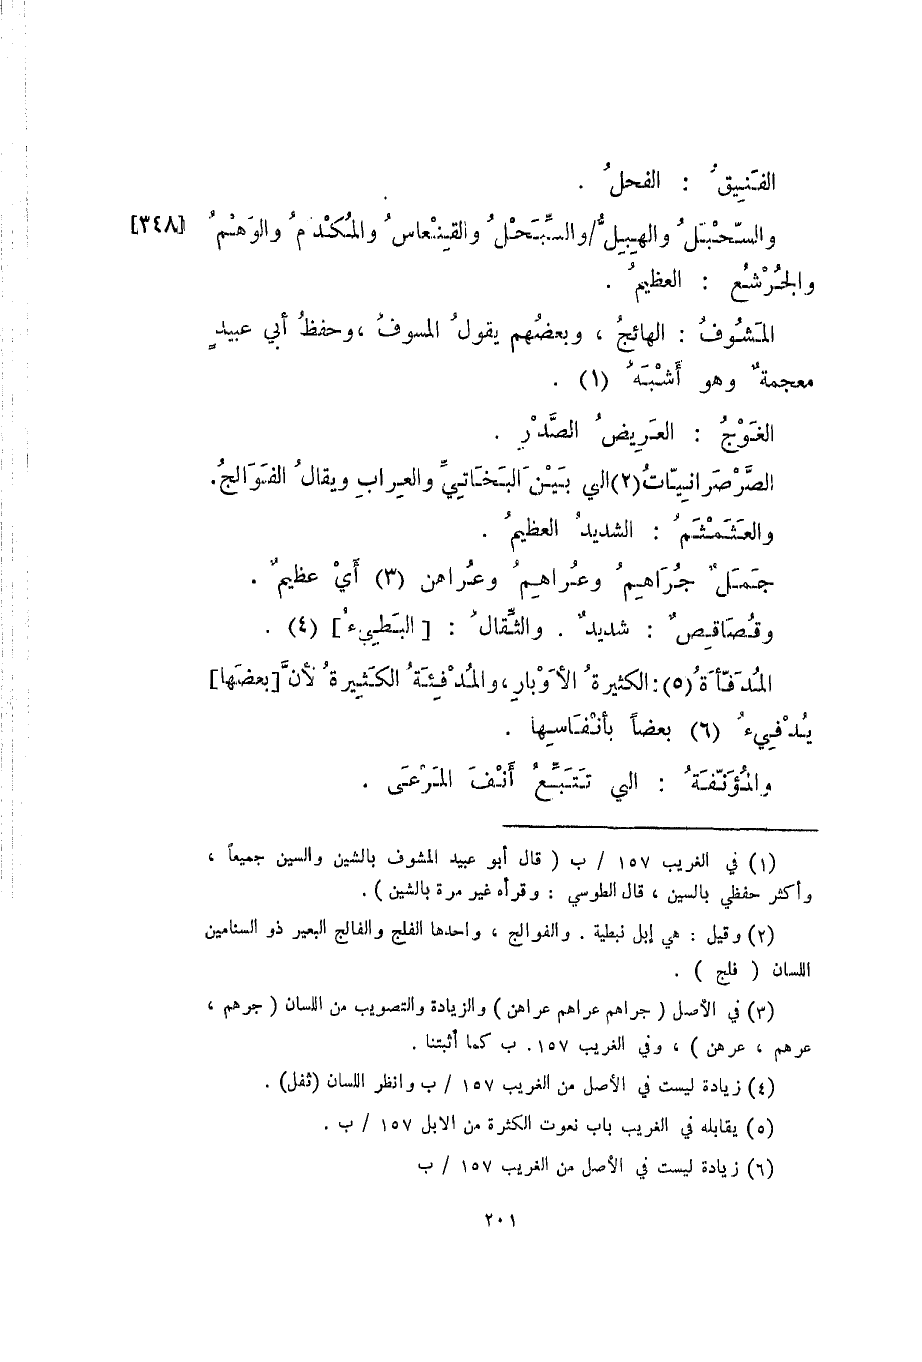 الفَنِيقُ : الفحلُ .
والسَّحْبَلُ والهِبِلُّ/والسِّبَحْلُ والقِنْعاسُ والمُكْدَمُ والوَهْمُ [٣٤٨]
والجُرْشُع : العظيمُ .
المَشُوفُ : الهائجُ ، وبعضُهم يقولُ المسوفُ ،وحفظُ أبي عبيدٍ
معجمةٌ وهو أَشْبَهُ (١) .
الغَوْجُ : العَرِيضُ الصَّدْرِ .
الصَّرْصَرانيّاتُ(٢)التي بَيْنَ البَخَاتيِّ والعِرابِ ويقالُ الفَوَالجُ.
والعَثَمْثَمُ : الشديدُ العظيمُ .
جَمَلٌ جُرَاهِمُ وعُراهِمُ وعُراهن (٣) أَيْ عظيمٌ .
وقُصَاقِصٌ : شديدٌ . والثَّفَالُ : [ البَطِيءُ] (٤) .
المُدَفّأَةُ(٥):الكثيرةُ الأَوْبارِ،والمُدْفِئَةُ الكَثِيرةُ لأنَّ[بعضَها]
يُدْفِيءُ (٦) بعضاً بأنْفَاسِها .
والمُؤَنّفَةُ : التي تَتَبَّعُ أَنْفَ المَرْعَى .
(١) في الغريب ١٥٧ / ب ( قال أبو عبيد المشوف بالشين والسين جميعاً ،
وأكثر حفظي بالسين ، قال الطوسي : وقرأه غير مرة بالشين ) .
(٢) وقيل : هي إبل نبطية . والفوالج ، واحدها الفلج والفالج البعير ذو السنامين
اللسان ( فلج ) .
(٣) في الأصل ( جراهم عراهم عراهن ) والزيادة والتصويب من اللسان ( جرهم ،
عرهم ، عرهن ) ، وفي الغريب ١٥٧. ب كما أثبتنا .
(٤) زيادة ليست في الأصل من الغريب ١٥٧ / ب وانظر اللسان (ثفل) .
(٥) يقابله في الغريب باب نعوت الكثرة من الابل ١٥٧ / ب .
(٦) زيادة ليست في الأصل من الغريب ١٥٧ / ب
٢٠١